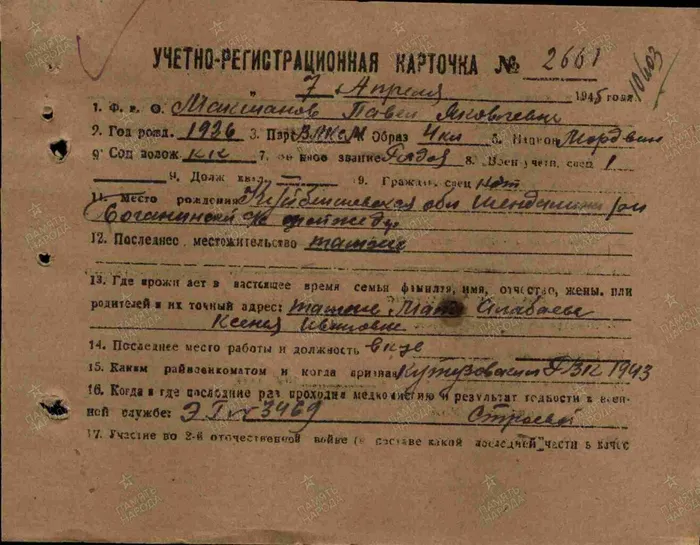 УЧЕТНО-РЕГИСТРАЦИОННАЯ КАРТОЧКА № 2661
10403
7 Апреля 1945 года
1. Ф. и. О. Макшанов Павел Яковлевич
2. Год рожд. 1926 3. Парт ВЛКСМ Образ 4 кл 5. Национ Мордвин
6 Соц полож кк 7. Военное звание Рядов 8. Воен учетн. спец 1
9. Долж квал. — 9. Граждан. спец нет
11. Место рождения Куйбышевская обл Шенталинский р-н
12. Последнее местожительство там же
13. Где прожи ает в настоящее время семья фамилия, имя, отчество, жены, или
родителей и их точный адрес: там же Мать
Ксения Ивановна
14. Последнее место работы и должность в к-зе
15. Каким райвоенкоматом и когда призван Кутузовским РВК 1943
16. Когда и где последние раз проходил медкомиссию и результат годности к воен-
ной службе: ЭГ № 3469 Строевой
17. Участие во 2-й отечественной войне (в составе какой последней части в качес
ПАМЯТЬ НАРОДА